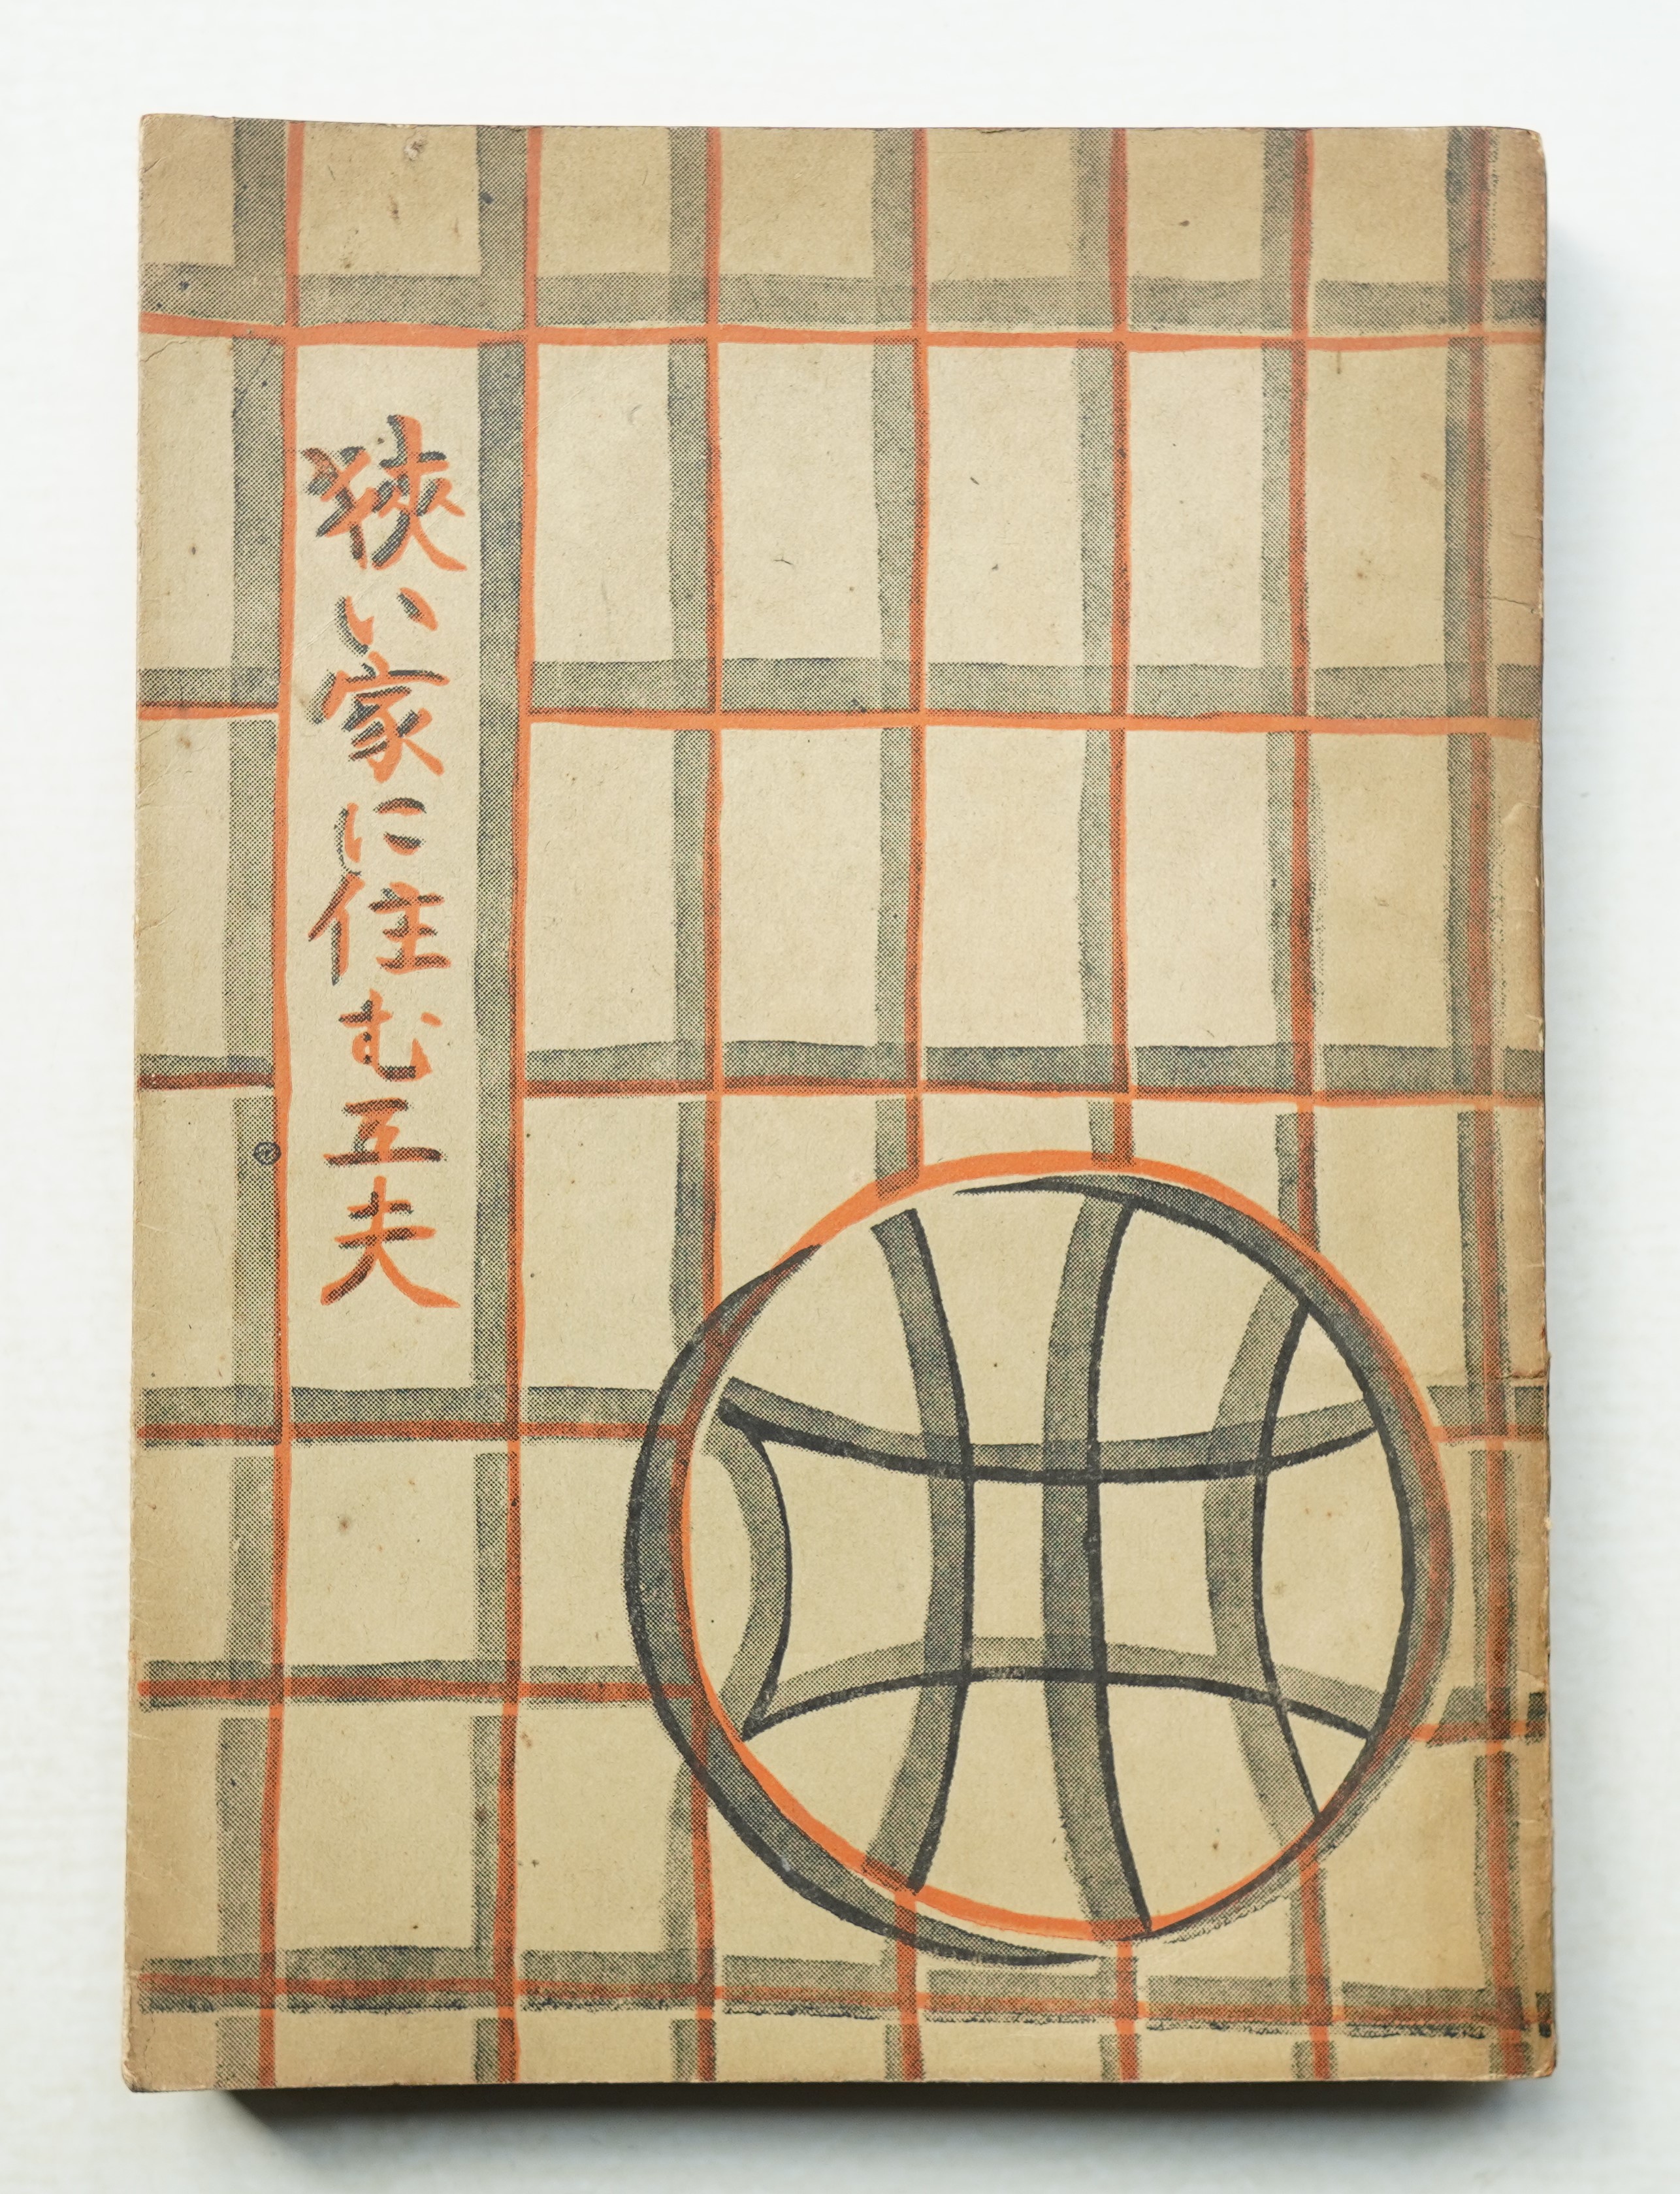 狹い家に住む工夫